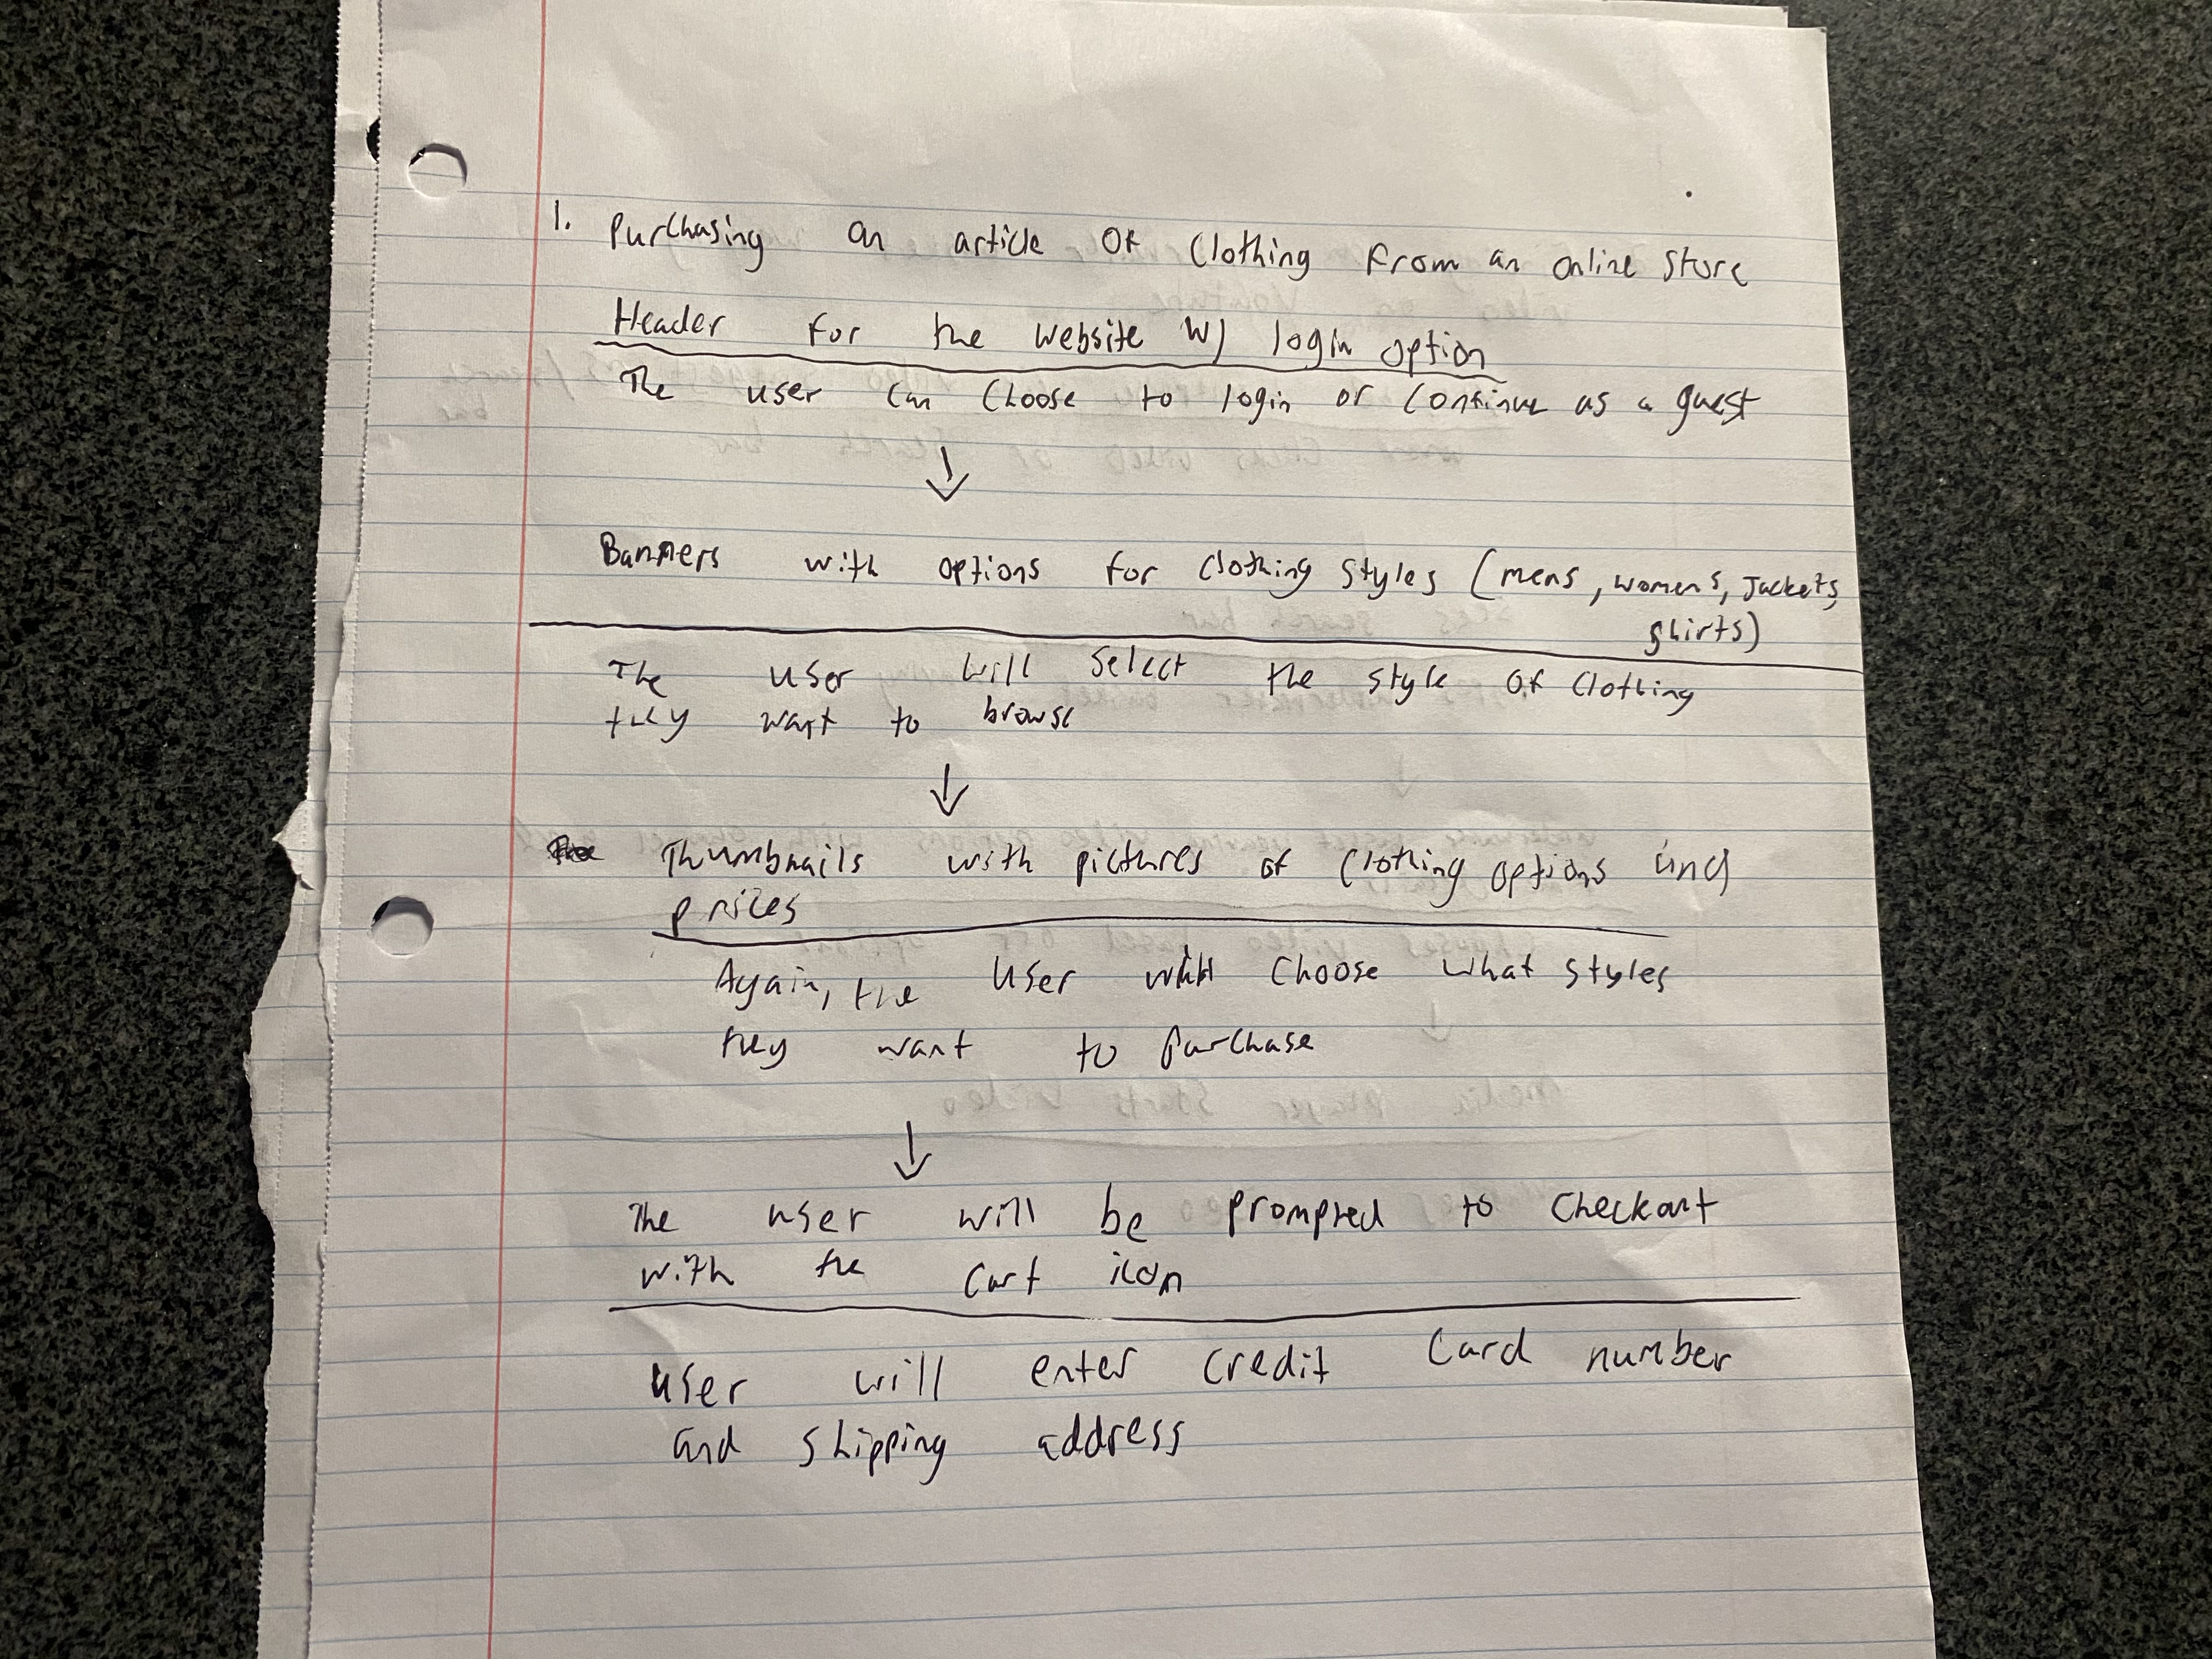 1. Purchasing an article of clothing from an online store
Header for the website w/ login option
The user can choose to login or continue as a guest
↓
Banners with options for clothing styles (mens, womens, jackets
shirts)
The user will select the style of clothing
they want to browse
↓
Thumbnails with pictures of clothing options and
prices
Again, the user will choose what styles
they want to purchase
↓
The user will be prompted to checkout
with the cart icon
User will enter credit card number
and shipping address